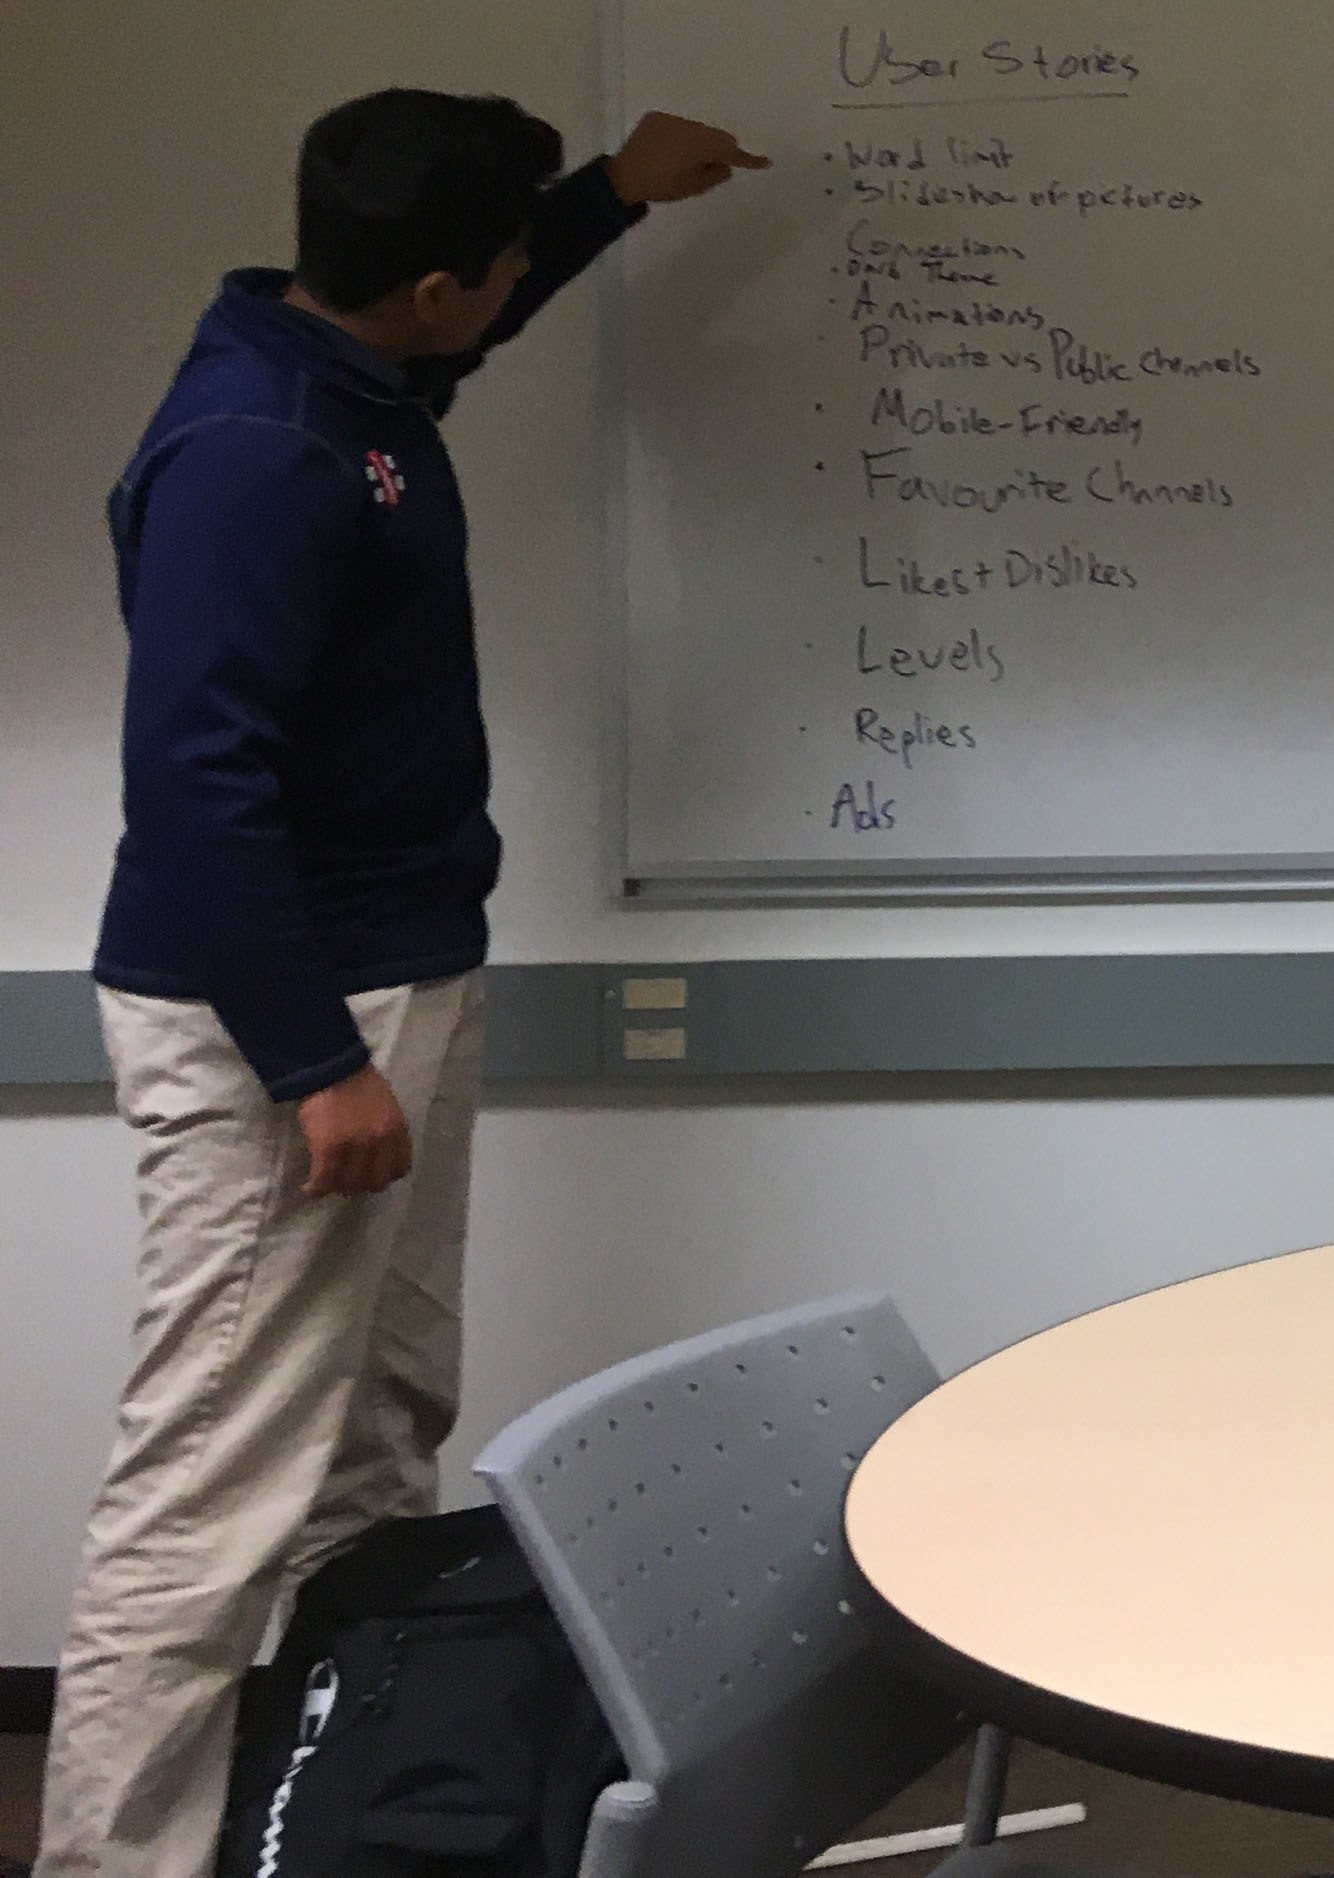 User Stories
· Word limit
· Slideshow of pictures
Connections
· Dark Theme
· Animations
· Private vs Public Channels
· Mobile-Friendly
· Favourite Channels
· Likes + Dislikes
· Levels
· Replies
· Ads
Champion